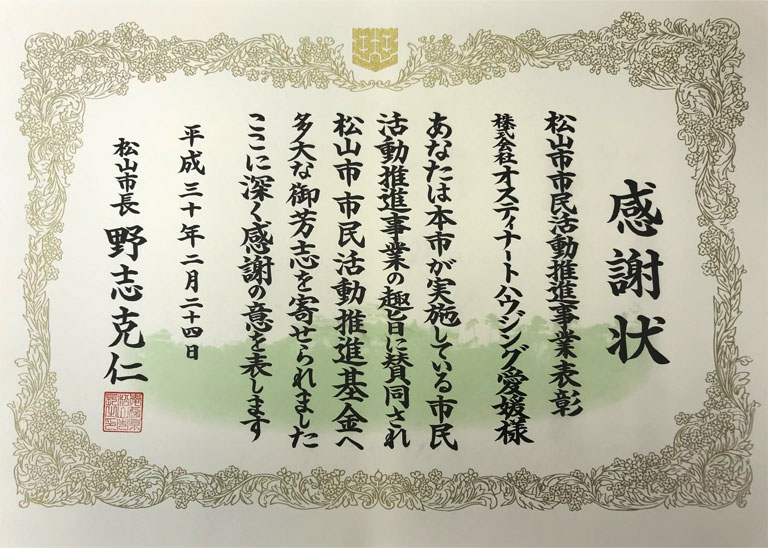 感謝状
松山市市民活動推進事業表彰
株式会社オスティナートハウジング愛媛様
あなたは本市が実施している市民
活動推進事業の趣旨に賛同され
松山市市民活動推進基金へ
多大な御芳志を寄せられました
ここに深く感謝の意を表します
平成三十年二月二十四日
松山市長 野志克仁